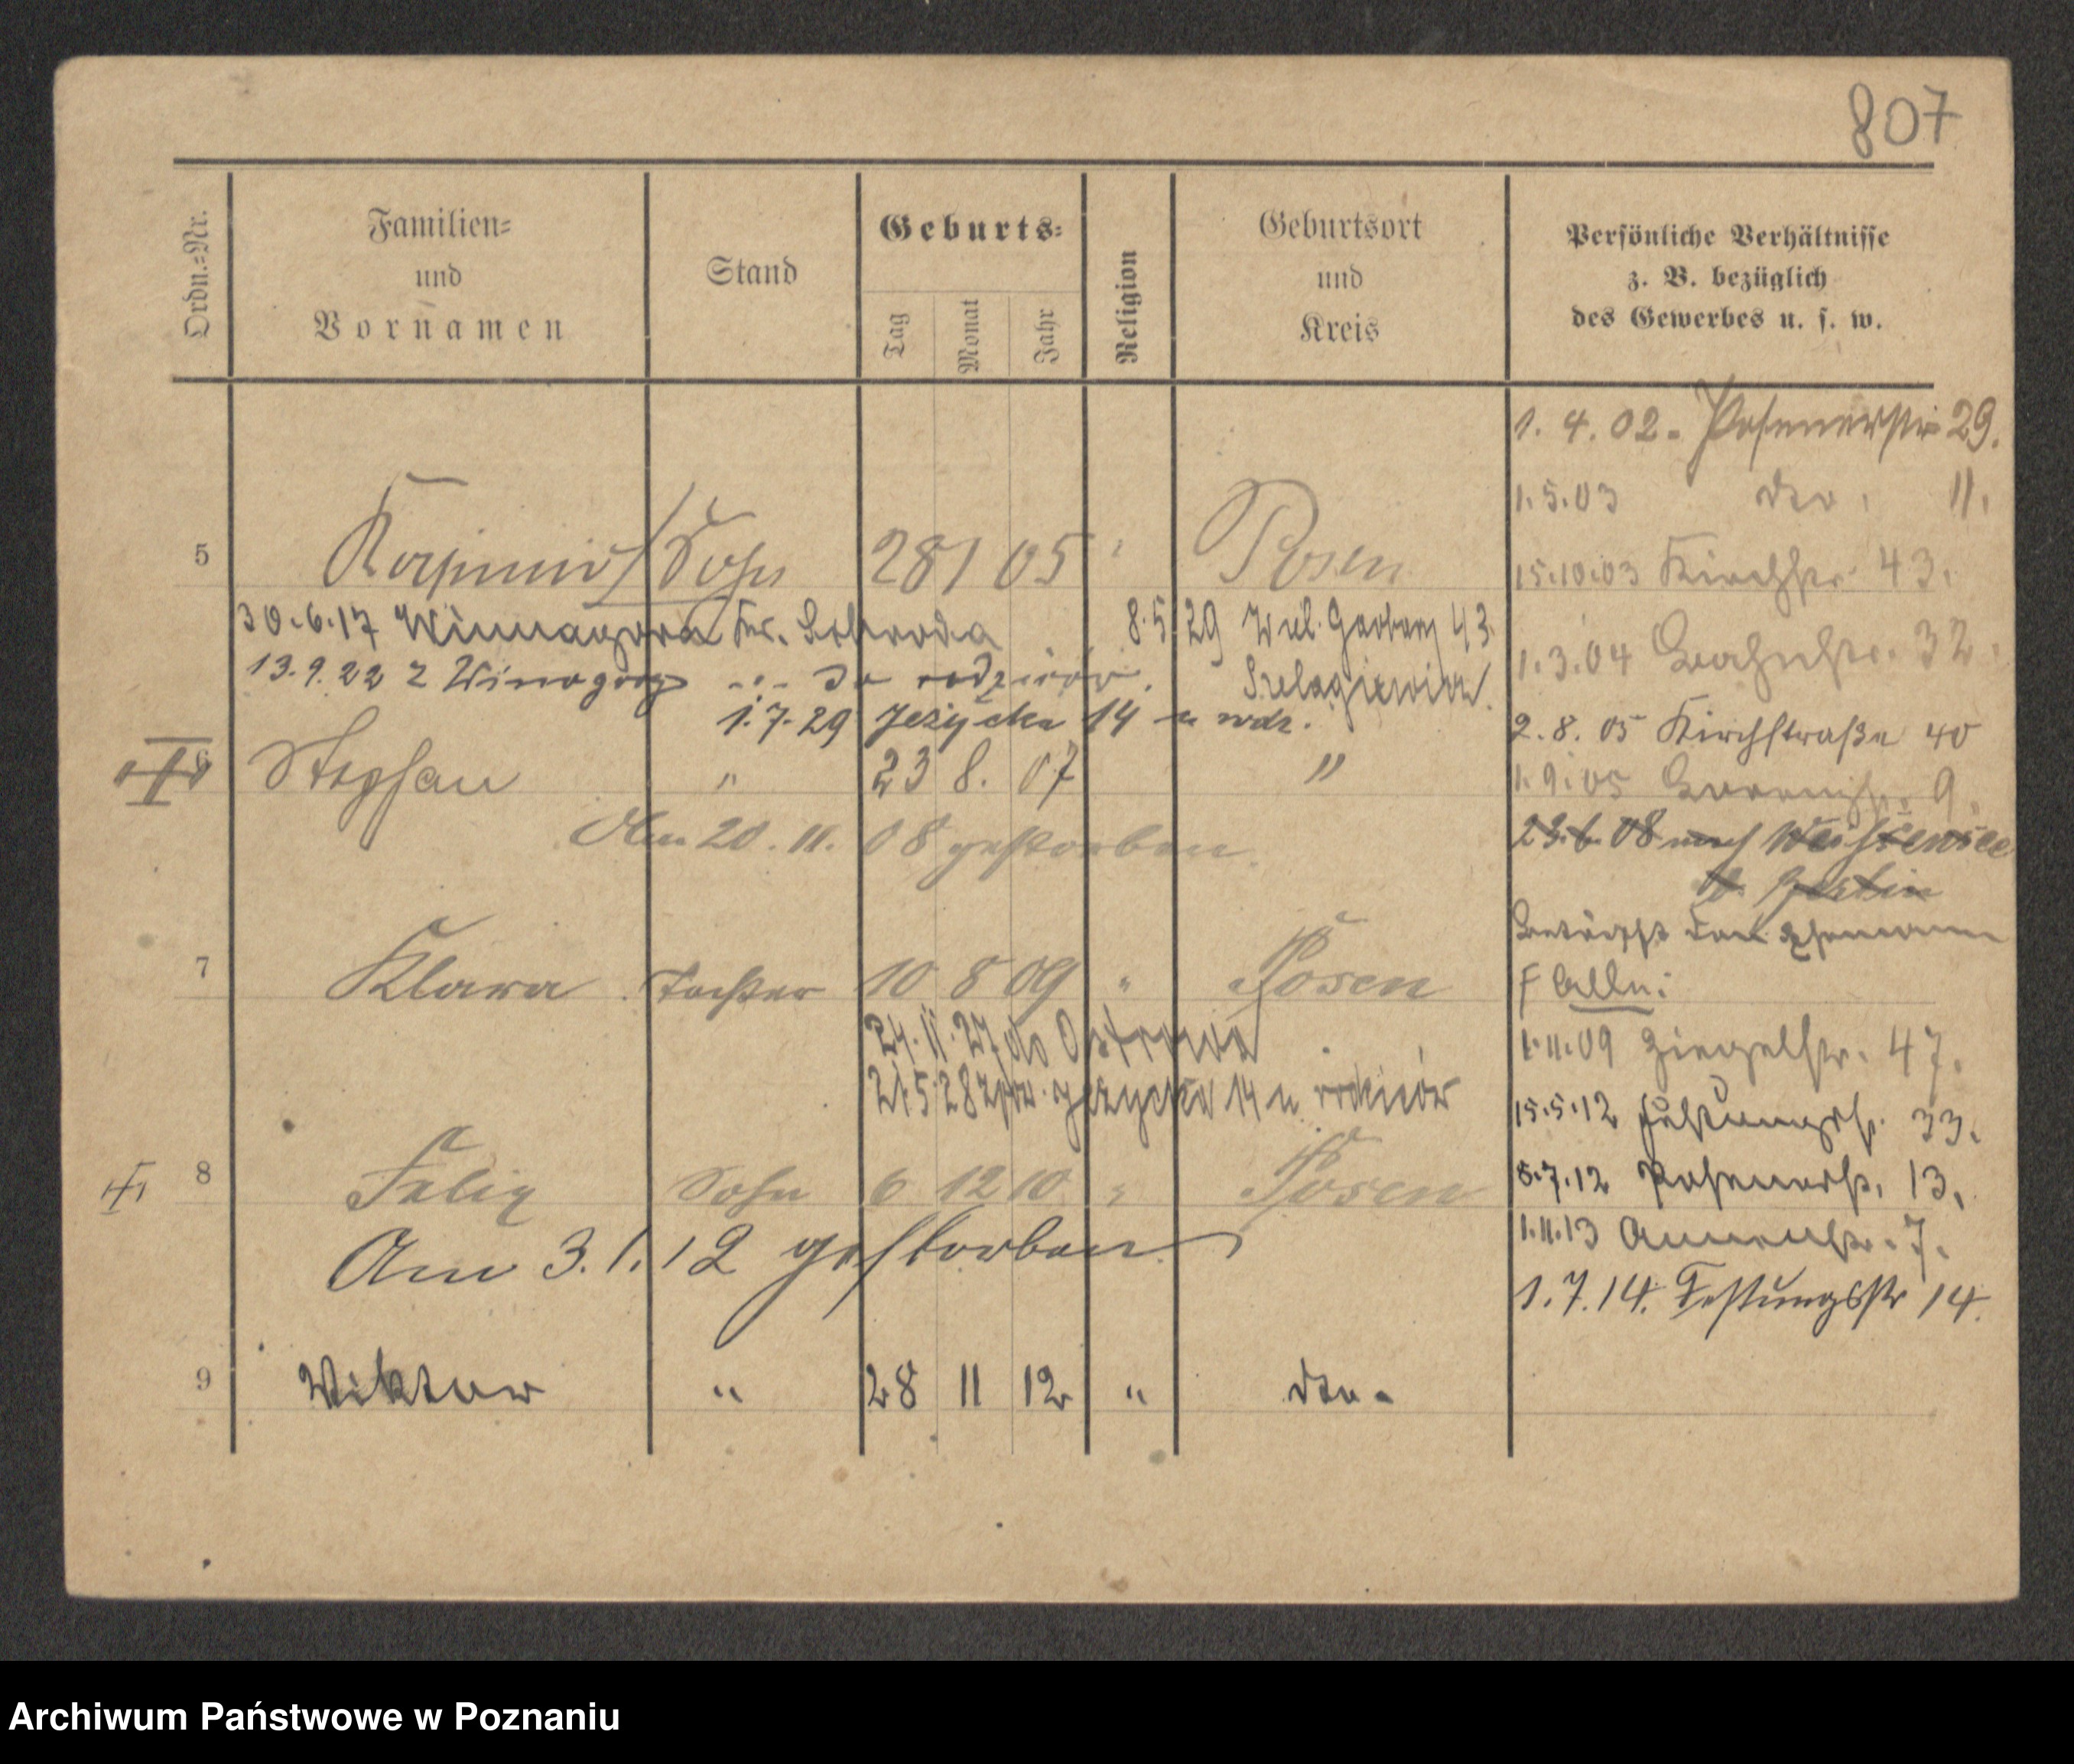 807
Ordn.=Nr.
Familien=
und
Vornamen
Stand
Geburts=
Tag
Monat
Jahr
Religion
Geburtsort
und
Kreis
Persönliche Verhältnisse
z. B. bezüglich
des Gewerbes u. s. w.
1. 4. 02. Posenerstr 29.
1.5.03 dto. 11.
5 Kasimir Sohn 28 1 05 " Posen
15.10.03 Kirchstr. 43.
30.6.17 Winnagora Kr. Schroda
8.5.29 Wiel. Garbary 43.
Szelagiewicz
1.3.04 Bahnhstr. 32.
13.9.22 z Winogóry do rodziców.
1.7.29 Jeżycka 14 u wdz.
2.8.05 Kirchstraße 40
6 Stephan " 23 8. 07 "
1.9.05 9.
Am 20. 11. 08 gestorben.
23.6.08 nach Weißensee
b. Berlin
Betrifft den Ehemann
F alln:
7 Klara Tochter 10 8 09 " Posen
24.11.27 do Ostrowa
1.11.09 Ziegelstr. 47.
21.5.28 Jeżycka 14 u rodziców
15.5.12 Festungsstr. 33.
8 Felix Sohn 6 12 10 " Posen
5.7.12 Posenerstr. 13.
Am 3. 1. 12 gestorben
1.11.13 Annenstr. 7.
1.7.14. Festungsstr 14.
9 Viktor " 28 11 12 " dto.
Archiwum Państwowe w Poznaniu